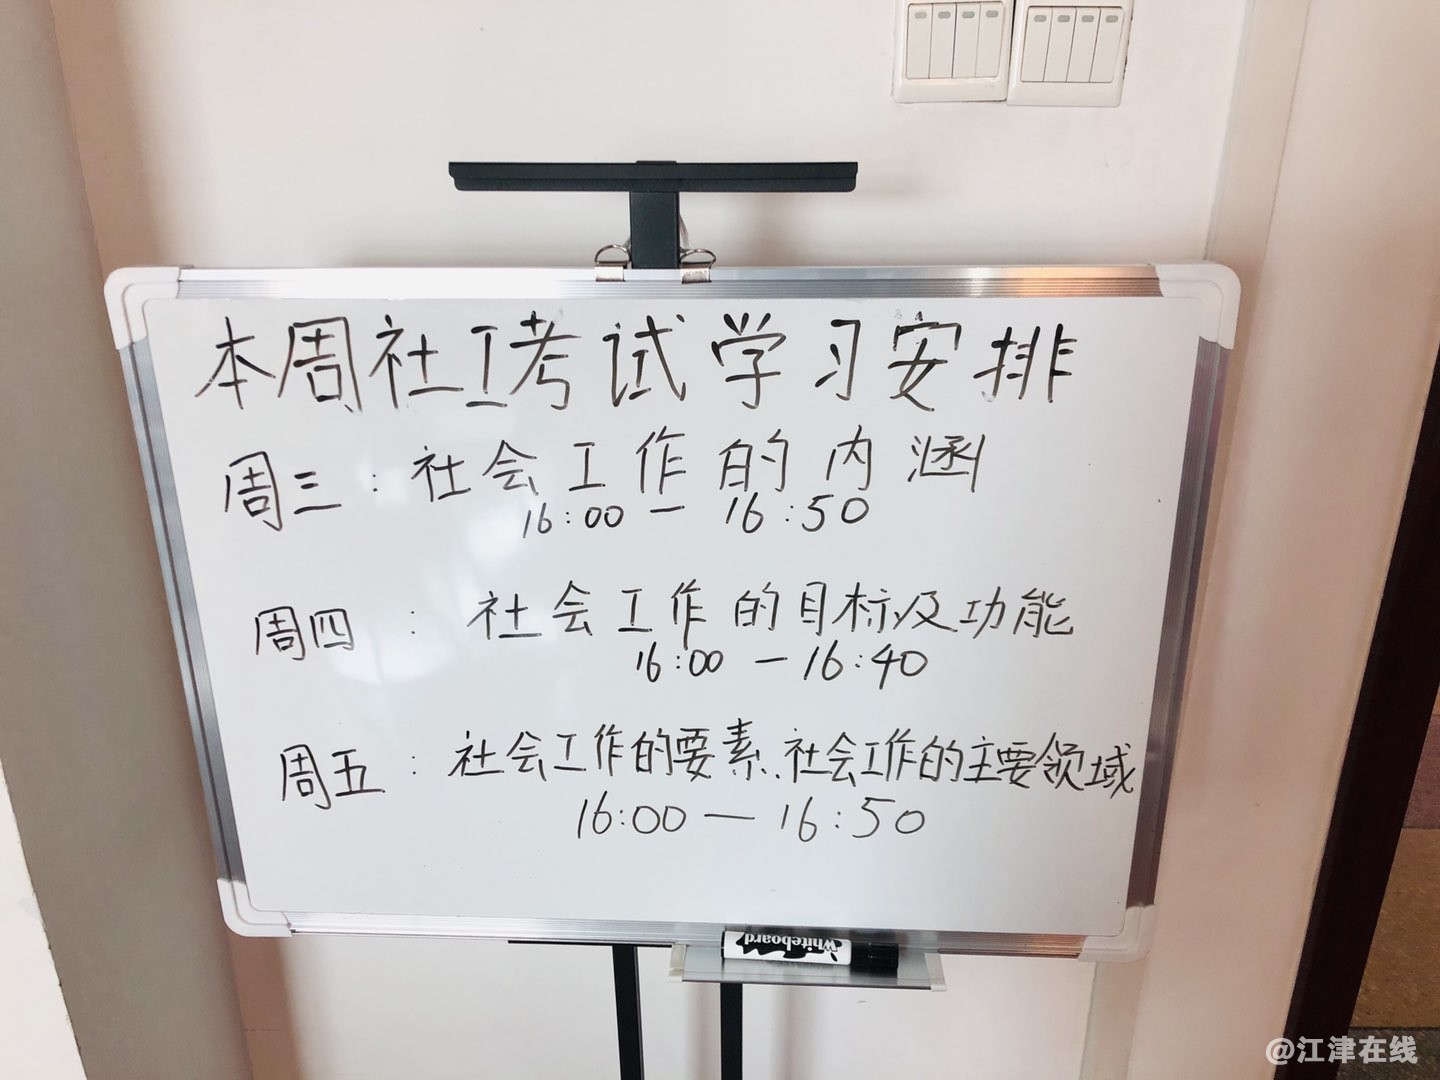 本周社工考试学习安排
周三：社会工作的内涵
16:00 — 16:50
周四：社会工作的目标及功能
16:00 — 16:40
周五：社会工作的要素、社会工作的主要领域
16:00 — 16:50
Whiteboard
@江津在线